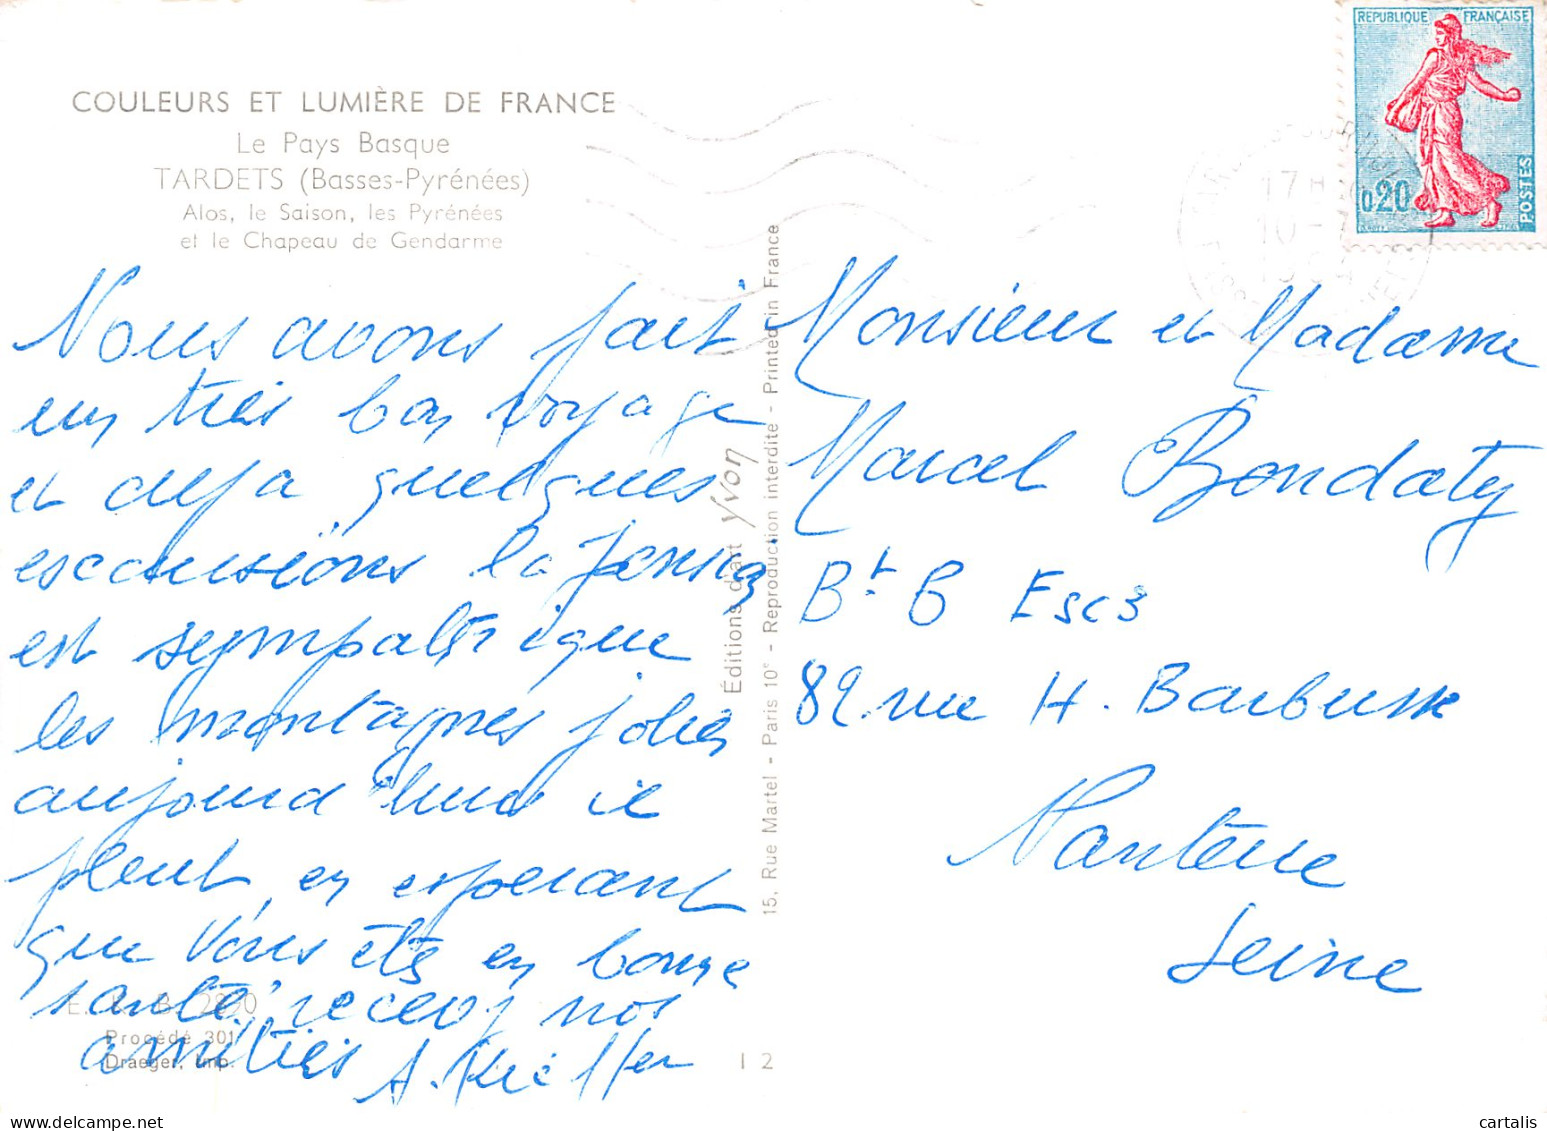 COULEURS ET LUMIÈRE DE FRANCE
Le Pays Basque
TARDETS (Basses-Pyrénées)
Alos, le Saison, les Pyrénées
et le Chapeau de Gendarme
Nous avons fait
un très bon voyage
et deja quelques
escursions la pension
est sympatique
les montagnes jolies
aujourd'hui il
pleut, en esperant
que vous êtes en bonne
santé, recevez nos
amitiés
E. K. B. 2800
Procédé 301
Draeger, Imp.
Éditions d'art Yvon
15, Rue Martel - Paris 10e - Reproduction interdite - Printed in France
I 2
REPUBLIQUE FRANÇAISE
0,20
POSTES
17 H
10 -
Monsieur et Madame
Marcel Bondaty
Bt. B Esc 3
82 rue H. Barbusse
Nanterre
Seine
cartalis